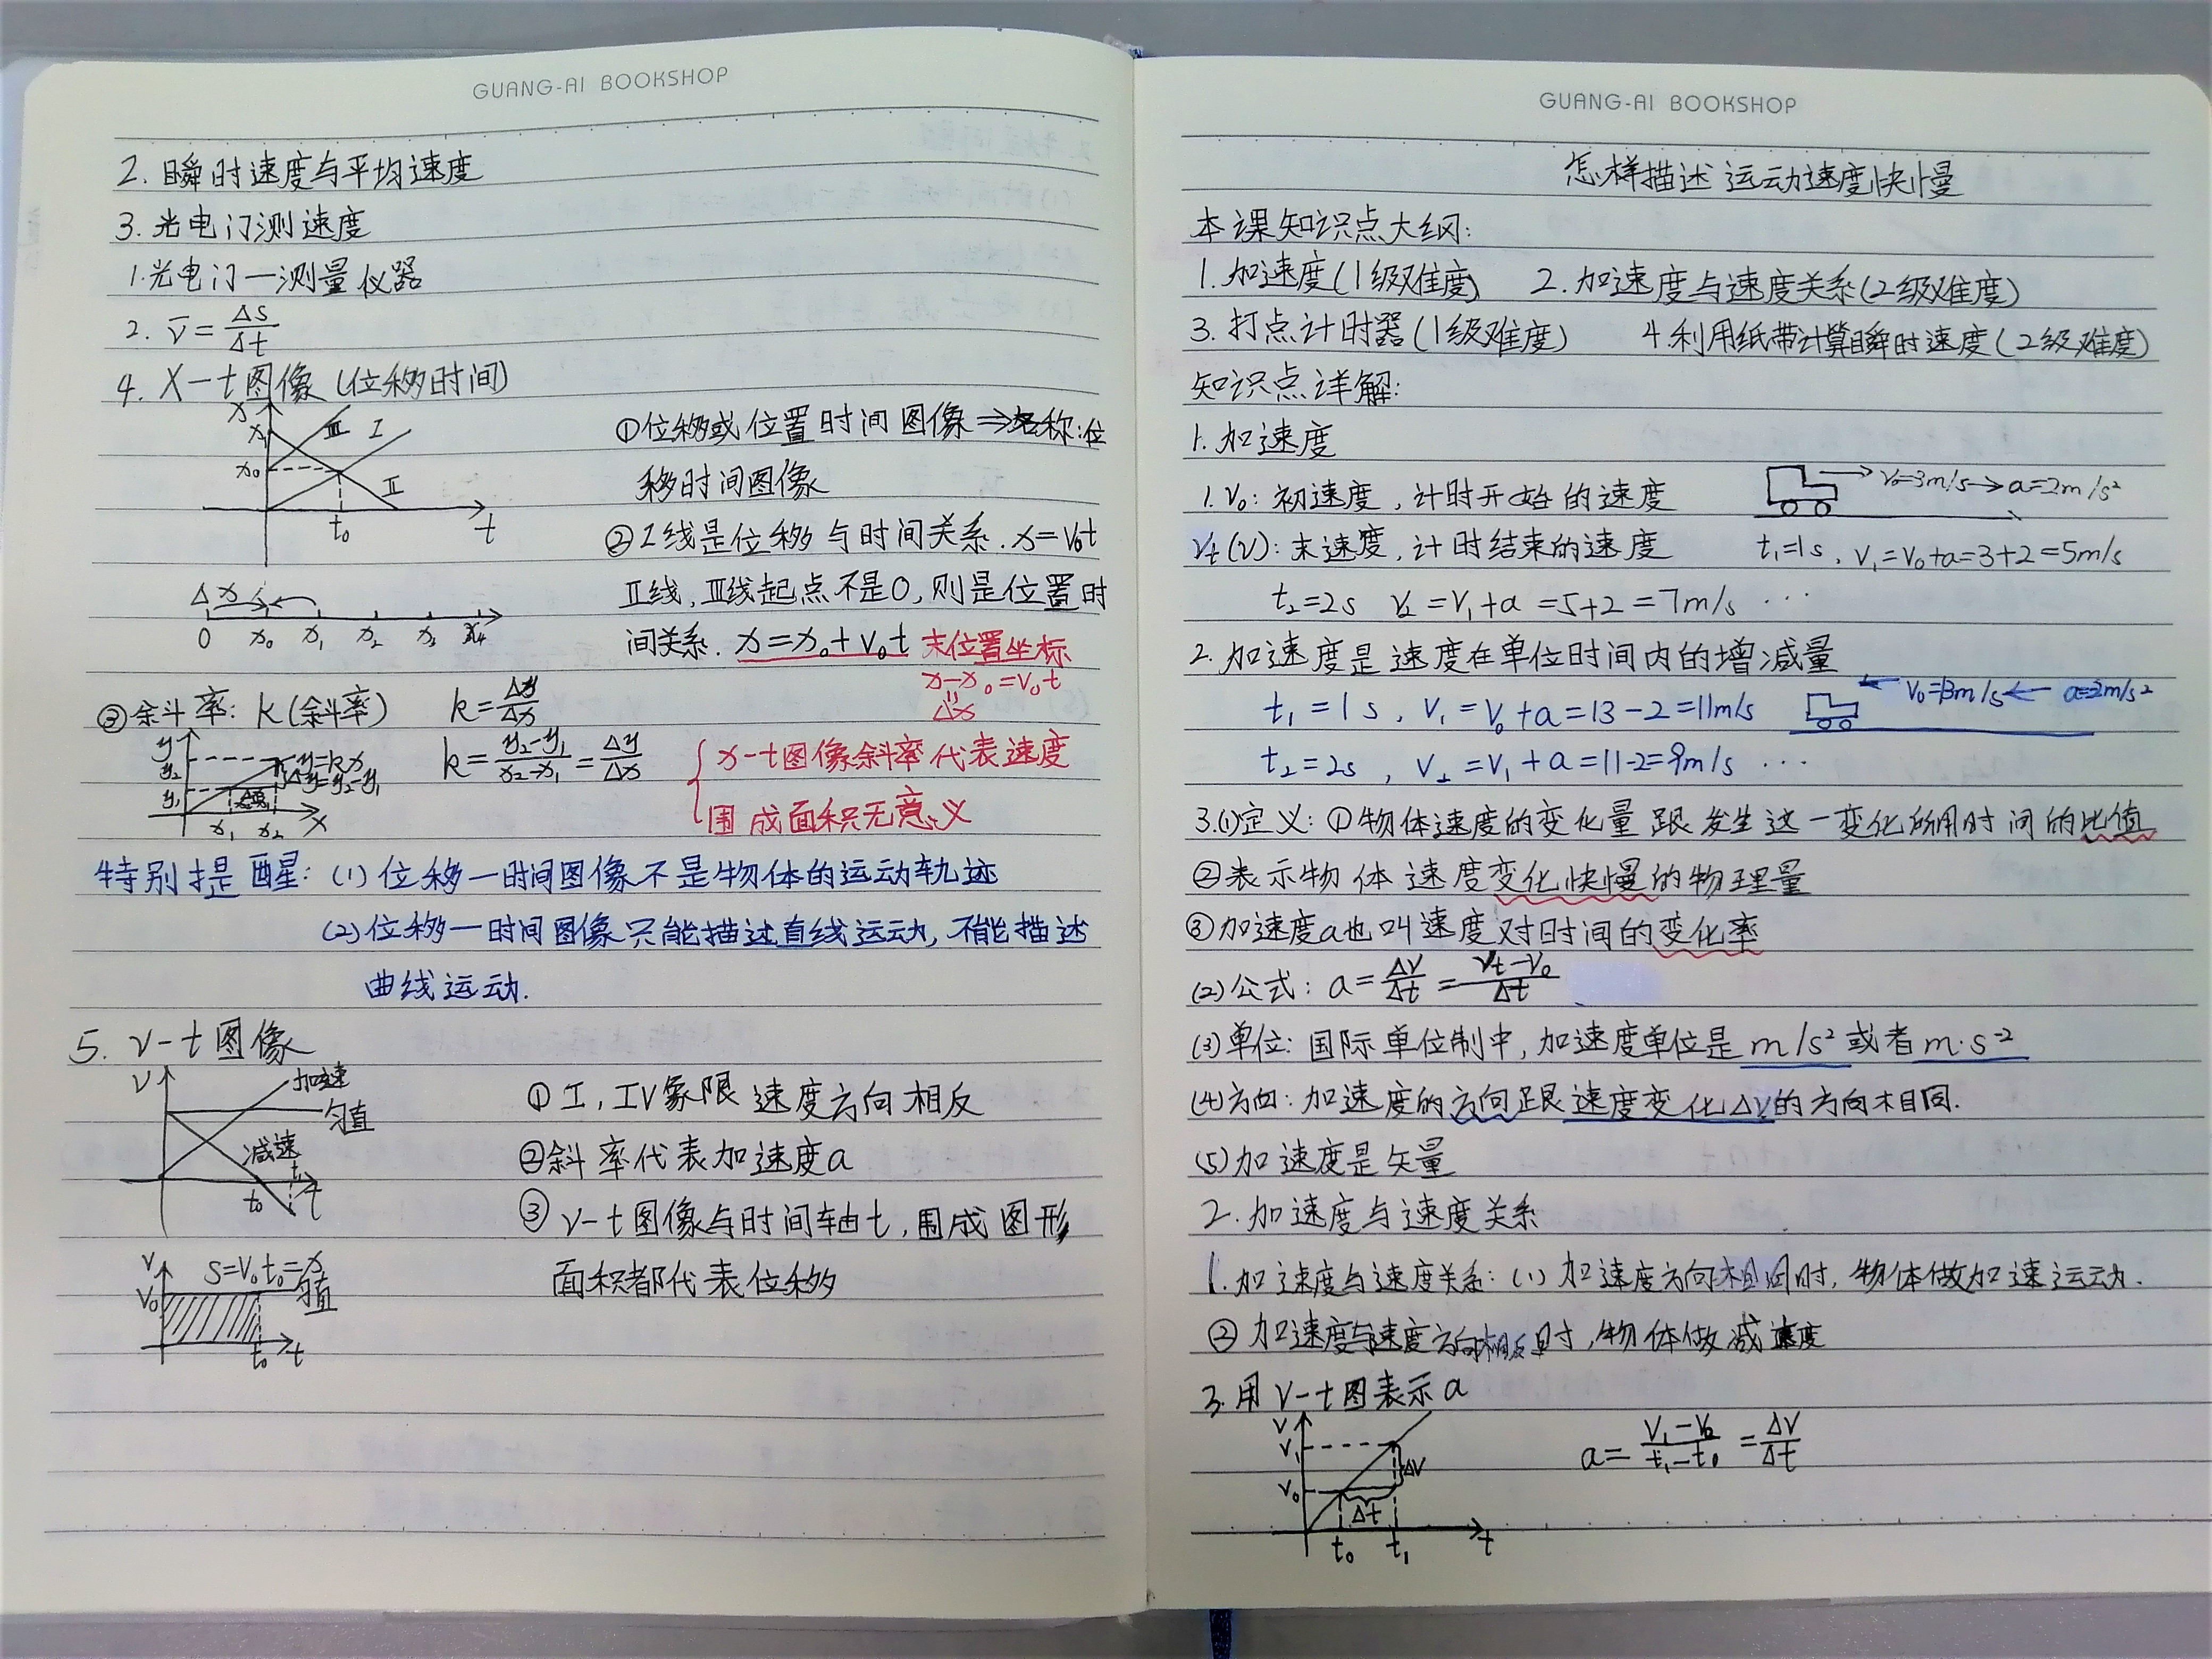 GUANG-AI BOOKSHOP
2. 瞬时速度与平均速度
3. 光电门测速度
1.光电门—测量仪器
2. v̄ = Δs/Δt
4. X-t图像(位移时间)
x
x₁
Ⅲ Ⅰ
x₀
Ⅱ
t₀ t
①位移或位置时间图像⇒名称:位
移时间图像
②I线是位移与时间关系. x=v₀t
Ⅱ线,Ⅲ线起点不是0,则是位置时
间关系. x=x₀+v₀t 末位置坐标
x-x₀=v₀t
Δx
Δx
0 x₀ x₁ x₂ x₃ x₄
③余斗率: k(余斗率) k=Δy/Δx
k=(y₂-y₁)/(x₂-x₁)=Δy/Δx
y
y₂
y=kx
Δy=y₂-y₁
y₁
x₁ x₂ x
x-t图像余斗率代表速度
围成面积无意义
特别提醒: (1) 位移—时间图像不是物体的运动轨迹
(2)位移—时间图像只能描述直线运动,不能描述
曲线运动.
5. v-t图像
v
加速
匀直
减速
t₀ t₁ t
①I, IV象限速度方向相反
②斜率代表加速度a
③ v-t图像与时间轴t,围成图形,
面积都代表位移
v
S=v₀t₀=x
v₀
匀直
t₀ t
GUANG-AI BOOKSHOP
怎样描述运动速度快慢
本课知识点大纲:
1.加速度(1级难度) 2.加速度与速度关系(2级难度)
3.打点计时器(1级难度) 4.利用纸带计算瞬时速度(2级难度)
知识点详解:
1.加速度
1.v₀: 初速度,计时开始的速度
v₀=3m/s→a=2m/s²
vt(v): 末速度,计时结束的速度 t₁=1s, v₁=v₀+a=3+2=5m/s
t₂=2s v₂=v₁+a=5+2=7m/s ···
2.加速度是速度在单位时间内的增减量
t₁=1s, v₁=v₀+a=13-2=11m/s
v₀=13m/s← a=2m/s²
t₂=2s, v₂=v₁+a=11-2=9m/s ···
3.(1)定义: ①物体速度的变化量跟发生这一变化所用时间的比值
②表示物体速度变化快慢的物理量
③加速度a也叫速度对时间的变化率
(2)公式: a=Δv/Δt=(vt-v₀)/Δt
(3)单位: 国际单位制中,加速度单位是m/s²或者m·s⁻²
(4)方向: 加速度的方向跟速度变化Δv的方向相同.
(5)加速度是矢量
2.加速度与速度关系
1.加速度与速度关系: (1)加速度方向相同时,物体做加速运动.
②加速度与速度方向相反时,物体做减速度
3.用v-t图表示a
v
v₁
Δv
v₀
Δt
t₀ t₁ t
a=(v₁-v₀)/(t₁-t₀)=Δv/Δt